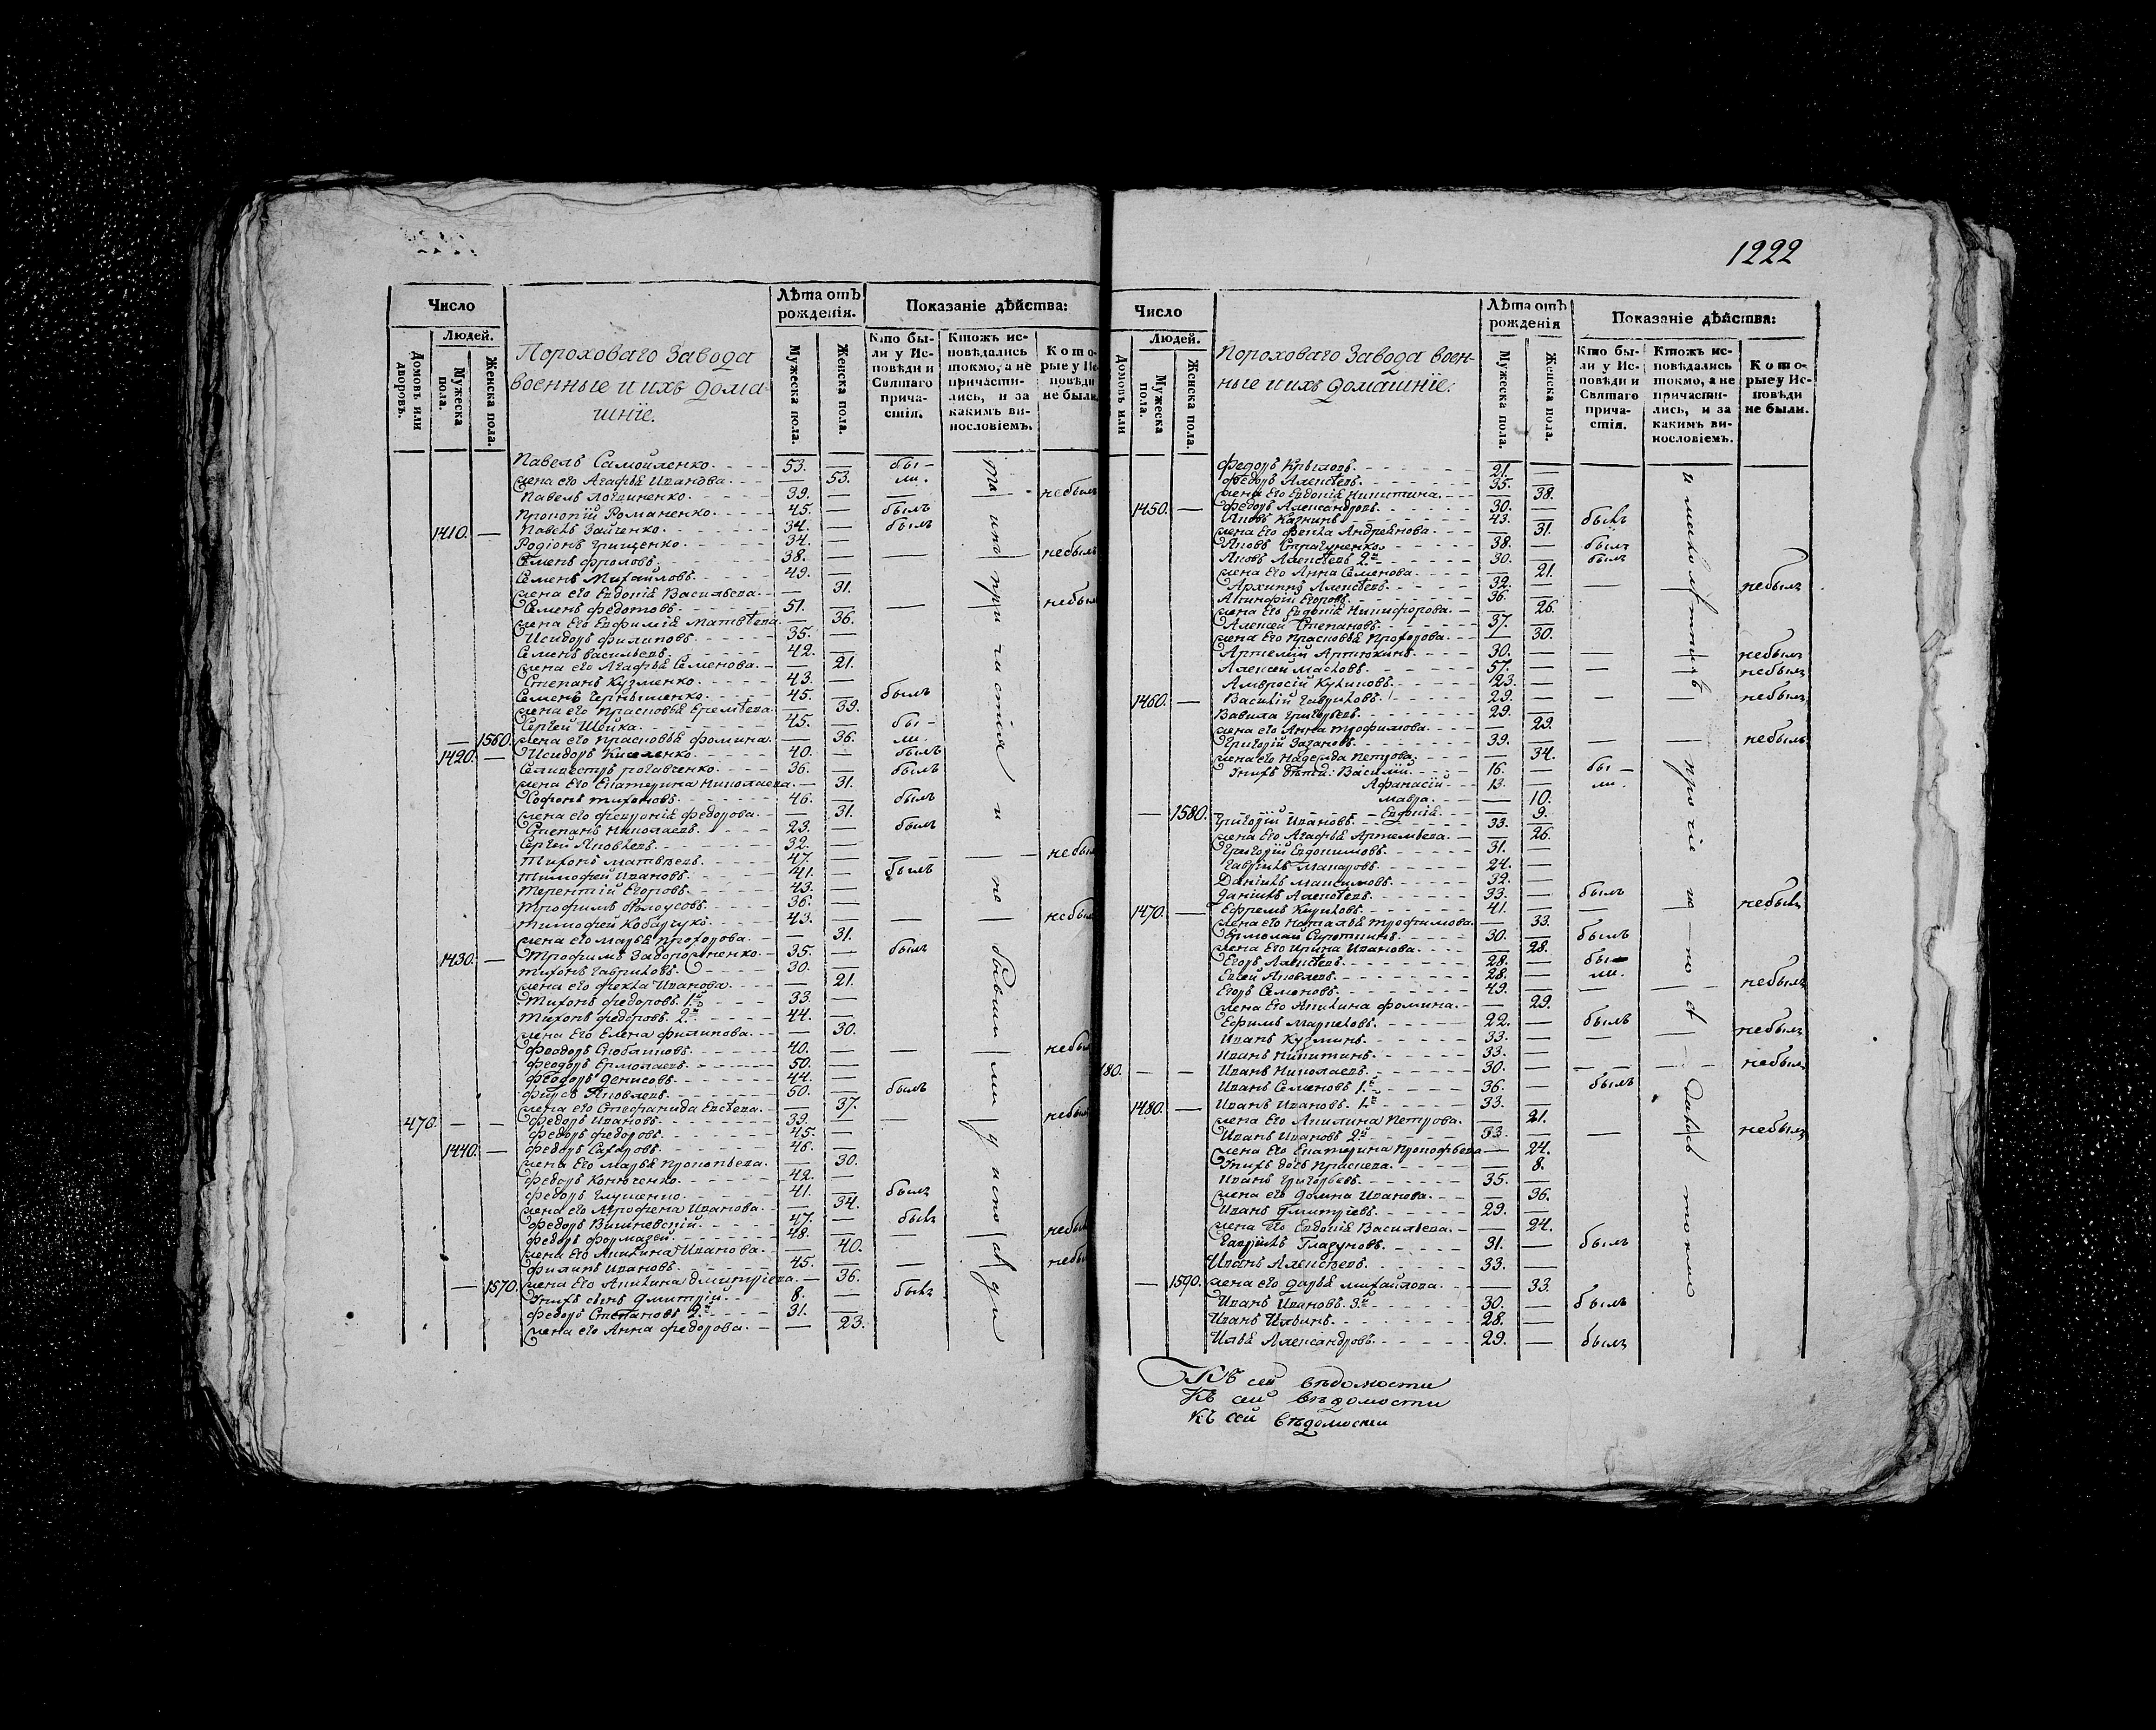 1222
Число
Людей.
Домовъ или дворовъ.
Мужеска пола.
Женска пола.
Пороховаго Завода
военные и ихъ дома-
шніе.
Лѣта отъ рожденія.
Мужеска пола.
Женска пола.
Показаніе дѣйства:
Кто бы-
ли у Ис-
повѣди и
Святаго
прича-
стія.
Ктожъ ис-
повѣдались
токмо, а не
причасти-
лись, и за
какимъ ви-
нословіемъ.
Кото-
рые у Ис-
повѣди
не были.
Павелъ Самойленко. 53. бы-
жена его Агафья Иванова. 53. ли.
Павелъ Логвиненко. 39. небылъ
Прокопій Романенко. 45. былъ
1410. Павелъ Зайченко. 34. былъ
Родіонъ Грищенко. 34.
Семенъ Фроловъ. 38. небылъ
Семенъ Михайловъ. 49.
жена его Евдокія Васильева. 31.
Семенъ Федотовъ. 51. небылъ
жена Его Евфимія Матвѣева. 36.
Исидоръ Филиповъ. 35.
Семенъ Васильевъ. 42.
жена его Агафья Семенова. 21.
Степанъ Кузменко. 43.
Семенъ Чернышенко. 45. былъ
жена его Прасковья Еремѣева. 39.
Сергей Шейка. 45. бы-
1560. жена его Прасковья Фомина. 36. ли.
1420. Исидоръ Киселенко. 40. былъ
Селивестръ Рогавченко. 36. былъ
жена Его Екатерина Николаева. 31.
Софонъ Тихоновъ. 46. былъ
жена его Февронія Федорова. 31.
Степанъ Николаевъ. 23. былъ
Сергей Яковлевъ. 32.
Тихонъ Матвѣевъ. 47. небылъ
Тимофей Ивановъ. 41. былъ
Терентій Егоровъ. 43.
Трофимъ Бѣлоусовъ. 36.
Тимофей Кобачукъ. 43. небылъ
жена его Марья Прохорова. 31.
1430. Трофимъ Задорожненко. 35. былъ
Тихонъ Гавриловъ. 30.
жена его Фекла Иванова. 21.
Тихонъ Федоровъ. 1й 33.
Тихонъ Федоровъ. 2й 44.
жена Его Елена Филипова. 30.
Феодоръ Слобатковъ. 40. небылъ
Феодоръ Ермолаевъ. 50.
Феодоръ Денисовъ. 44.
Фирсъ Яковлевъ. 50. былъ
жена его Стефанида Евсѣева. 37.
470. Федоръ Ивановъ. 39. небылъ
Федоръ Федоровъ. 45.
1440. Федоръ Сахаровъ. 46.
жена Его Марья Прокопьева. 30.
Федоръ Конюченко. 42.
Федоръ Глущенко. 41. былъ
жена его Агрофена Иванова. 34.
Федоръ Вишневскій. 47. былъ
Федоръ Формазей. 48. небылъ
жена Его Акилина Иванова. 40.
Филипъ Ивановъ. 45. небылъ
1570. жена Его Акилина Дмитріева. 36.
Унихъ сынъ Дмитрій. 8. былъ
Федоръ Степановъ 2й 31.
жена его Анна Федорова. 23.
Число
Людей.
Домовъ или
Мужеска пола.
Женска пола.
Пороховаго Завода воен-
ные и ихъ домашніе:
Лѣта отъ рожденія
Мужеска пола.
Женска пола.
Показаніе дѣйства:
Кто бы-
ли у Ис-
повѣди и
Святаго
прича-
стія.
Ктожъ ис-
повѣдались
токмо, а не
причасти-
лись, и за
какимъ ви-
нословіемъ.
Кото-
рые у Ис-
повѣди
не были.
Федоръ Крыловъ. 21.
Федоръ Алексѣевъ. 35.
жена Его Евдокія Никитина. 38.
1450. Федоръ Александровъ. 30.
Яковъ Казнинъ. 43. былъ
жена Его Фекла Андреянова. 31.
Яковъ Страгуненко. 38. былъ
Яковъ Алексѣевъ 2й 30. былъ
жена его Анна Семенова. 21.
Архипъ Алексѣевъ. 32. небылъ
Акинфій Егоровъ. 36.
жена Его Евдокія Никифорова. 26.
Алексей Степановъ. 37.
жена Его Прасковья Прохорова. 30.
Артемій Артюхинъ. 30. небылъ
Алексей Масловъ. 57. небылъ
Амвросій Куликовъ. 23.
1460. Василій Гавриловъ. 29. небылъ
Вавила Григорьевъ. 29.
жена его Анна Трофимова. 29.
Григорій Зазановъ. 39. небылъ
жена его Надежда Петрова. 34.
Унихъ дѣти: Василій. 16. бы-
Афанасій. 13. ли.
Мавра. 10.
1580. Евдокія. 9.
Григорій Ивановъ. 33.
жена Его Агафья Артемьева. 26.
Григорій Евдокимовъ. 31.
Гаврилъ Макаровъ. 24.
Данилъ Максимовъ. 32.
Данилъ Алексѣевъ. 33. былъ
1470. Ефремъ Кириловъ. 41. небылъ
жена его Наталья Трофимова. 33.
Ермолай Сиротинъ. 30. былъ
жена Его Ирина Иванова. 28.
Егоръ Алексѣевъ. 28. бы-
Евсей Яковлевъ. 28. ли.
Егоръ Семеновъ. 49. небылъ
жена Его Акилина Фомина. 29.
Ефимъ Маркеловъ. 22. былъ
Иванъ Кузминъ. 33. небылъ
Иванъ Никитинъ. 33.
480. Иванъ Николаевъ. 30. небылъ
Иванъ Семеновъ 1й 36. былъ
1480. Иванъ Ивановъ. 1й 33.
жена Его Акилина Петрова. 21.
Иванъ Ивановъ 2й 33. небылъ
жена Его Екатерина Прокофьева 24.
Унихъ дочь Прасковья. 8.
Иванъ Григорьевъ. 35.
жена его Домна Иванова. 36.
Иванъ Дмитріевъ. 29.
жена Его Евдокія Васильева. 24.
Гаврилъ Глазуновъ. 31. былъ
Иванъ Алексѣевъ. 33.
1590. жена его Дарья Михайлова. 33.
Иванъ Ивановъ. 3й 30. былъ
Иванъ Ильинъ. 28.
Илья Александровъ. 29. былъ
Къ сей вѣдомости
Къ сей вѣдомости
Къ сей вѣдомости